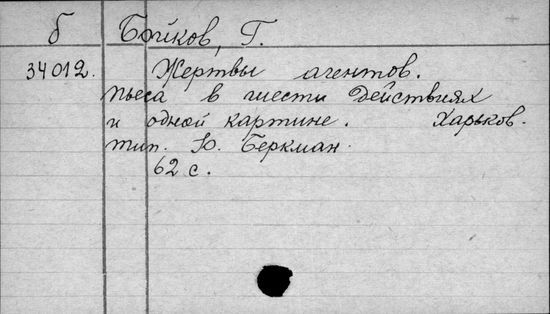 б Бойков, Г.
34012. Жертвы агентов.
пьеса в шести действиях
и одной картине. Харьков.
тип. Ю. Беркман.
62 с.